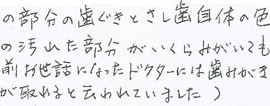 の部分の歯ぐきとさし歯自体の色
の汚れた部分がいくらみがいても
前お世話になったドクターには歯みがき
が取れると云われていました）